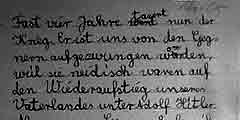 Fast vier Jahre dauert nun der
Krieg. Er ist uns von den Geg-
nern aufgezwungen worden,
weil sie neidisch waren auf
den Wiederaufstieg unseres
Vaterlandes unter Adolf Hitler.